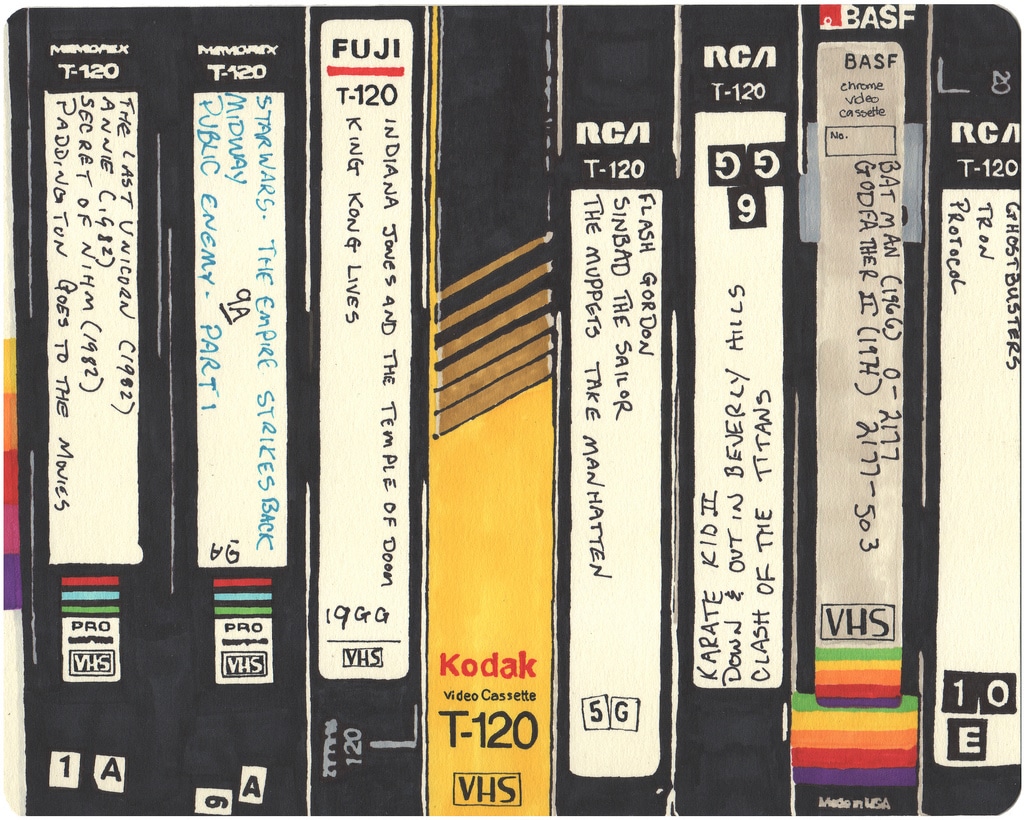 MEMOREX
T-120
THE LAST UNICORN (1982)
ANNIE (1982)
SECRET OF NIHM (1982)
PADDINGTON GOES TO THE MOVIES
PRO
VHS
1 A
MEMOREX
T-120
STARWARS. THE EMPIRE STRIKES BACK
MIDWAY 9A
PUBLIC ENEMY - PART 1
9A
PRO
VHS
9 A
FUJI
T-120
INDIANA JONES AND THE TEMPLE OF DOOM
KING KONG LIVES
19GG
VHS
120
Kodak
Video Cassette
T-120
VHS
RCA
T-120
FLASH GORDON
SINBAD THE SAILOR
THE MUPPETS TAKE MANHATTEN
5 G
RCA
T-120
G G
9
KARATE KID II
DOWN & OUT IN BEVERLY HILLS
CLASH OF THE TITANS
BASF
BASF
chrome
video
cassette
No.
BATMAN (1966) 0-2177
GODFATHER II (1974) 2177-503
VHS
Made in USA
20
RCA
T-120
GHOSTBUSTERS
TRON
PROTOCOL
1 0
E